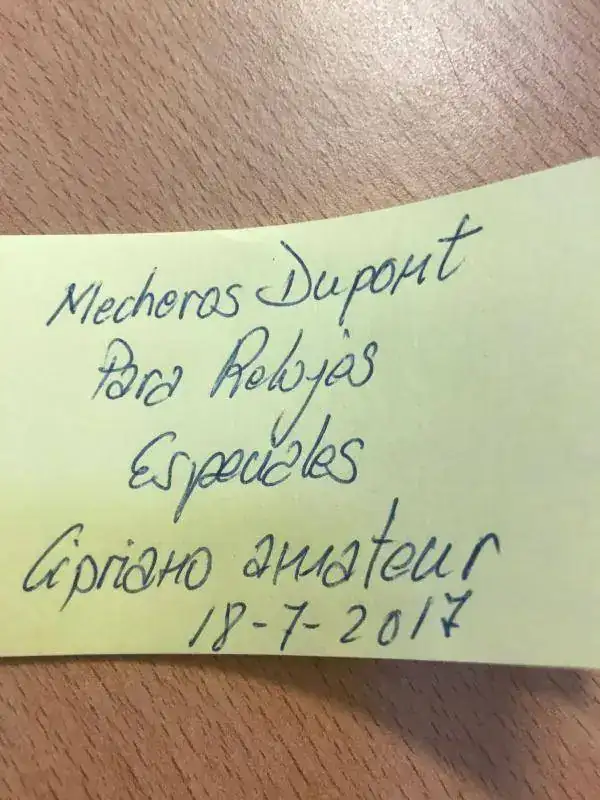 Mecheros Dupont
Para Relojes
Especiales
Cipriano amateur
18-7-2017